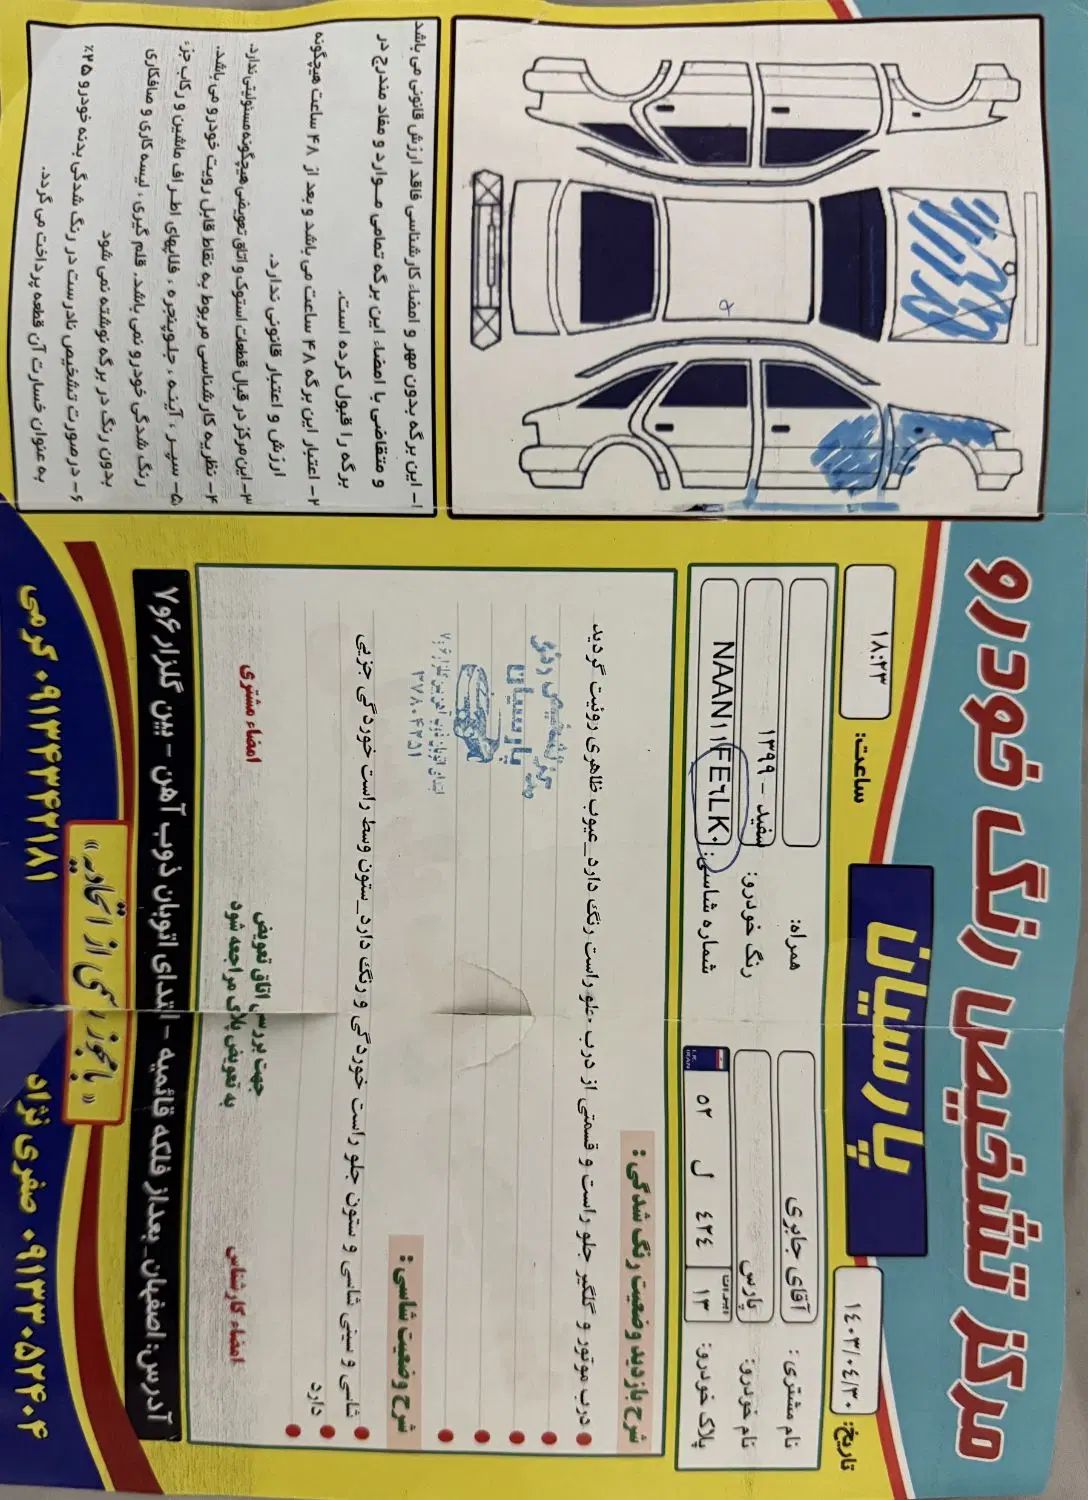 مرکز تشخیص رنگ خودرو
پارسیان
تاریخ: ۱۴۰۳/۰۴/۳۰
ساعت: ۱۸:۲۳
نام مشتری: آقای جابری
همراه:
نام خودرو: پارس
رنگ خودرو: سفید - ۱۳۹۹
پلاک خودرو: ۵۲ ل ۴۲۴ ایران ۱۳
I.R. IRAN
شماره شاسی: NAAN۱۱FE۶LK۰
شرح بازدید وضعیت رنگ شدگی:
درب موتور و گلگیر جلو راست و قسمتی از درب جلو راست رنگ دارد_عیوب ظاهری روئیت گردید
پارسیان
شرح وضعیت شاسی:
شاسی و سینی شاسی و ستون جلو راست خوردگی و رنگ دارد_ستون وسط راست خوردگی جزیی
دارد
امضاء کارشناس
جهت بررسی اتاق تعویض
به تعویض پلاک مراجعه شود
امضاء مشتری
آدرس: اصفهان_بعد از فلکه قائمیه - ابتدای اتوبان ذوب آهن - بین گلزار ۶و۷
«با مجوز رسمی از اتحادیه»
۰۹۱۳۳۰۵۲۴۰۴ صفری نژاد
۰۹۱۳۴۳۴۲۱۸۱ کرمی
۱- این برگه بدون مهر و امضاء کارشناسی فاقد ارزش قانونی می باشد
و متقاضی با امضاء این برگه تمامی موارد و مفاد مندرج در
برگه را قبول کرده است.
۲- اعتبار این برگه ۴۸ ساعت می باشد و بعد از ۴۸ ساعت هیچگونه
ارزش و اعتبار قانونی ندارد.
۳- این مرکز در قبال قطعات استوک و اتاق تعویضی هیچگونه مسئولیتی ندارد.
۴- نظریه کارشناسی مربوط به نقاط قابل رویت خودرو می باشد.
۵- سپر، آینه، جلوپنجره، فلاپهای اطراف ماشین و رکاب جزء
رنگ شدگی خودرو نمی باشد. قلم گیری، لیسه کاری و صافکاری
بدون رنگ در برگه نوشته نمی شود
۶- در صورت تشخیص نادرست در رنگ شدگی بدنه خودرو ۲۵٪
به عنوان خسارت آن قطعه پرداخت می گردد.